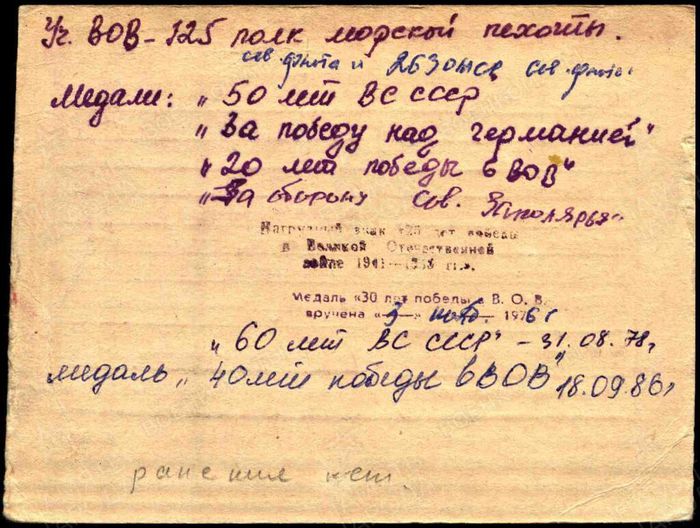 Уч. ВОВ - 125 полк морской пехоты.
сев. флота и 263 омсв сев. флота
Медали: „ 50 лет ВС СССР
„ За победу над германией"
„ 20 лет победы в ВОВ"
„ За оборону Сов. Заполярья"
Нагрудный знак «25 лет победы
в Великой Отечественной
войне 1941—1945 гг.».
Медаль «30 лет победы в В. О. В.
вручена «3» нояб. 1976 г
„ 60 лет ВС СССР" - 31.08.78г
медаль „ 40 лет победы в ВОВ" 18.09.86г
ранения нет.